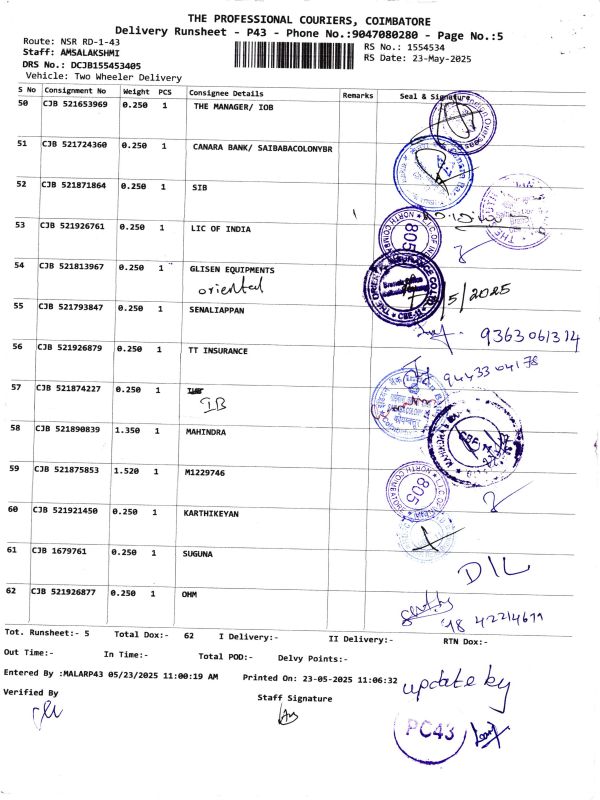 THE PROFESSIONAL COURIERS, COIMBATORE
Delivery Runsheet - P43 - Phone No.:9047080280 - Page No.:5
Route: NSR RD-1-43
Staff: AMSALAKSHMI
RS No.: 1554534
DRS No.: DCJB155453405
RS Date: 23-May-2025
Vehicle: Two Wheeler Delivery
S No Consignment No Weight PCS Consignee Details Remarks Seal & Signature
50 CJB 521653969 0.250 1 THE MANAGER/ IOB
51 CJB 521724360 0.250 1 CANARA BANK/ SAIBABACOLONYBR
52 CJB 521871864 0.250 1 SIB
53 CJB 521926761 0.250 1 LIC OF INDIA
805
54 CJB 521813967 0.250 1 GLISEN EQUIPMENTS
oriental
/5/2025
55 CJB 521793847 0.250 1 SENALIAPPAN
9363061314
56 CJB 521926879 0.250 1 TT INSURANCE
9443304178
57 CJB 521874227 0.250 1
IB
58 CJB 521890839 1.350 1 MAHINDRA
59 CJB 521875853 1.520 1 M1229746
805
60 CJB 521921450 0.250 1 KARTHIKEYAN
61 CJB 1679761 0.250 1 SUGUNA
D/L
62 CJB 521926877 0.250 1 OHM
Tot. Runsheet:- 5 Total Dox:- 62 I Delivery:- II Delivery:- RTN Dox:-
Out Time:- In Time:- Total POD:- Delvy Points:-
Entered By :MALARP43 05/23/2025 11:00:19 AM Printed On: 23-05-2025 11:06:32
update by
Verified By Staff Signature
PC43